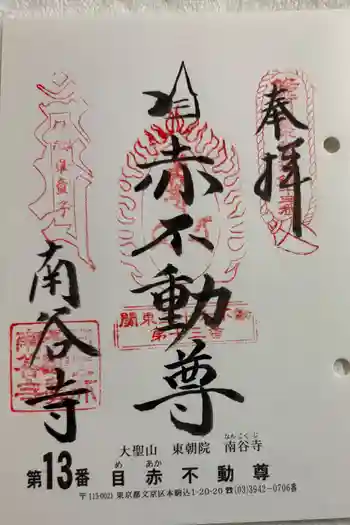 奉拝
目赤不動尊
南谷寺
大聖山 東朝院 南谷寺
第13番 目赤不動尊
〒113-0021 東京都文京区本駒込1-20-20 ☎(03)3942-0706番